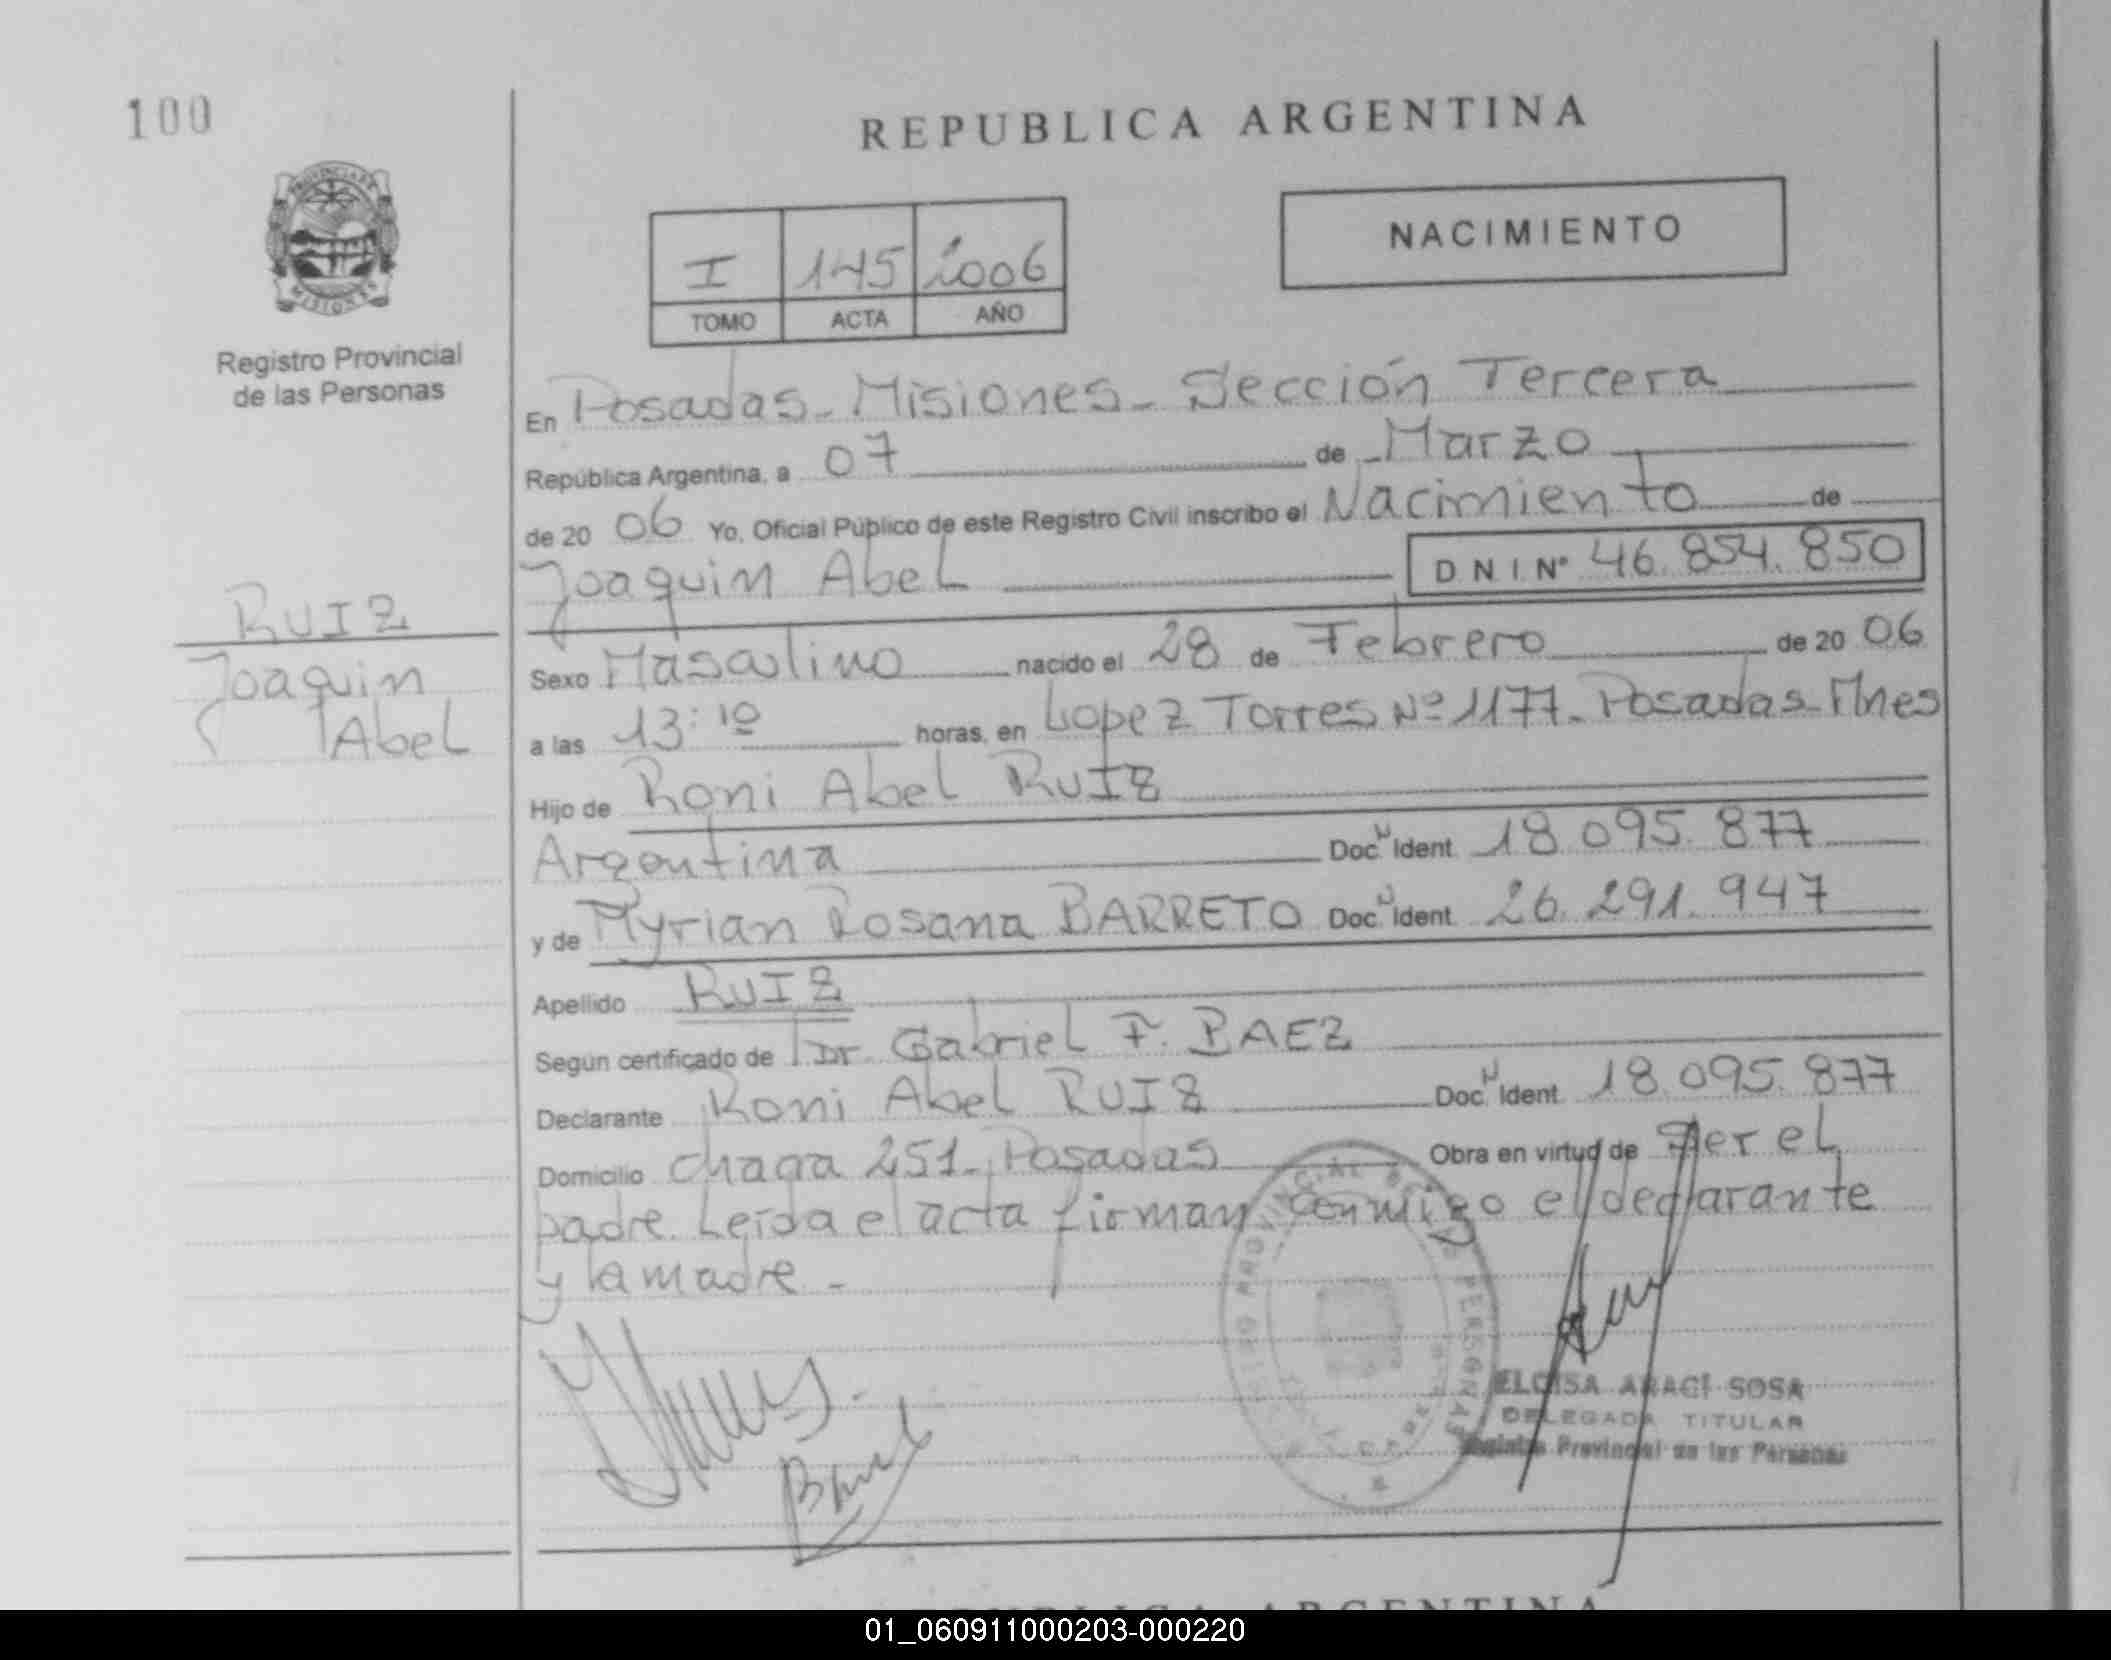 100
REPUBLICA ARGENTINA
NACIMIENTO
I 145 2006
TOMO ACTA AÑO
PROVINCIA DE
MISIONES
Registro Provincial
de las Personas
En Posadas - Misiones - Sección Tercera
República Argentina, a 07 de Marzo
de 2006 Yo, Oficial Público de este Registro Civil inscribo el Nacimiento de
Joaquin Abel DNI Nº 46.854.850
RUIZ
Joaquin
Abel
Sexo Masculino nacido el 28 de Febrero de 2006
a las 13:10 horas, en Lopez Torres Nº 1177 - Posadas - Mnes
Hijo de Roni Abel RUIZ
Argentina Doc. N Ident. 18.095.877
y de Myrian Rosana BARRETO Doc. N Ident. 26.291.947
Apellido RUIZ
Según certificado de Dr. Gabriel F. BAEZ
Declarante Roni Abel RUIZ Doc. N Ident. 18.095.877
Domicilio 251 - Posadas Obra en virtud de ser el
padre. Leída el acta firman conmigo el declarante
y la madre -
REGISTRO PROVINCIAL DE LAS PERSONAS
ELOISA ARACI SOSA
DELEGADA TITULAR
Registro Provincial de las Personas
REPUBLICA ARGENTINA
01_060911000203-000220